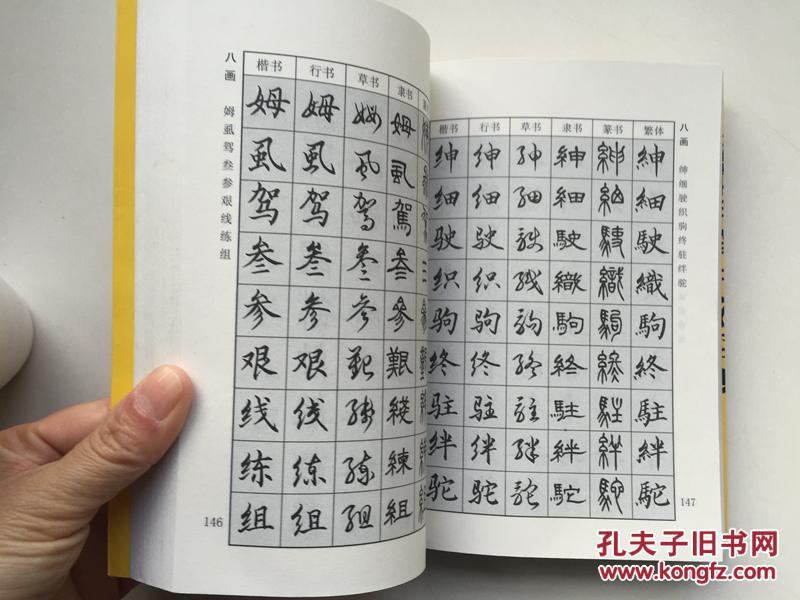 八画
姆虱驾叁参艰线练组
楷书 行书 草书 隶书
姆 姆 姆 姆
虱 虱 虱 虱
驾 驾 驾 駕
叁 叁 叁 叁
参 参 参 參
艰 艰 艰 艱
线 线 线 綫
练 练 练 練
组 组 组 組
146
楷书 行书 草书 隶书 篆书 繁体
绅 绅 绅 紳 紳 紳
细 细 细 細 細 細
驶 驶 驶 駛 駛 駛
织 织 织 織 織 織
驹 驹 驹 駒 駒 駒
终 终 终 終 終 終
驻 驻 驻 駐 駐 駐
绊 绊 绊 絆 絆 絆
驼 驼 驼 駝 駝 駝
八画
绅细驶织驹终驻绊驼
147
孔夫子旧书网
www.kongfz.com